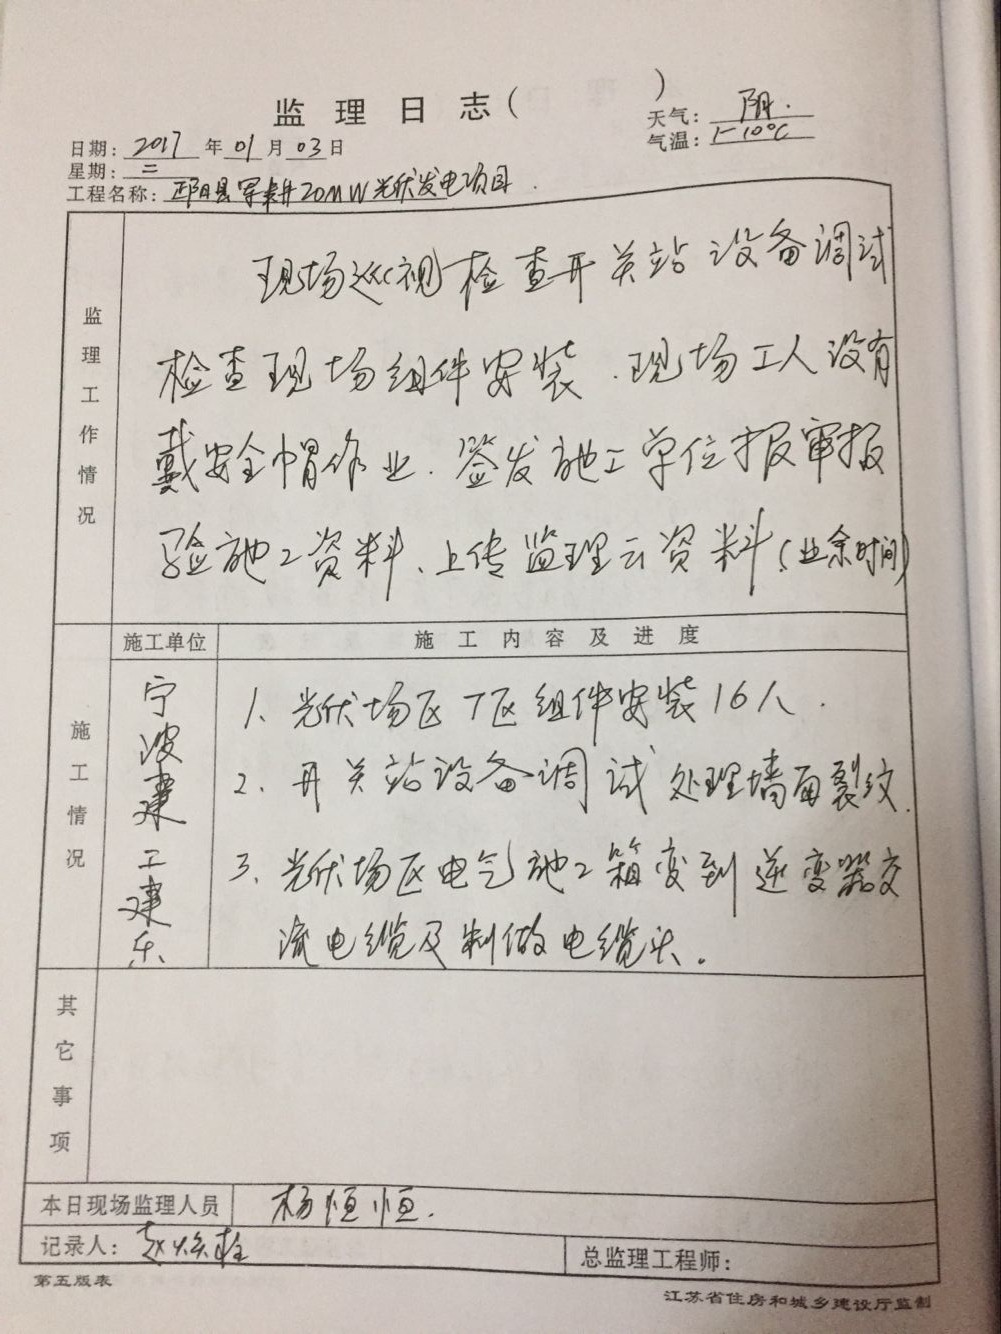 监理日志（　　）
天气：阴.
气温：1-10℃
日期：2017年01月03日
星期：二
工程名称：阳县军井20MW光伏发电项目.
监理工作情况
现场巡视检查开关站设备调试
检查现场组件安装.现场工人没有
戴安全帽作业.签发施工单位报审报
验施工资料、上传监理云资料(业余时间)
施工单位
施工内容及进度
施工情况
宁波建工建乐
1、光伏场区T区组件安装16人.
2、开关站设备调试处理墙面裂纹.
3、光伏场区电气施工箱变到逆变器交
流电缆及制做电缆头。
其它事项
本日现场监理人员
杨恒恒.
记录人：赵焕栓
总监理工程师：
第五版表
江苏省住房和城乡建设厅监制